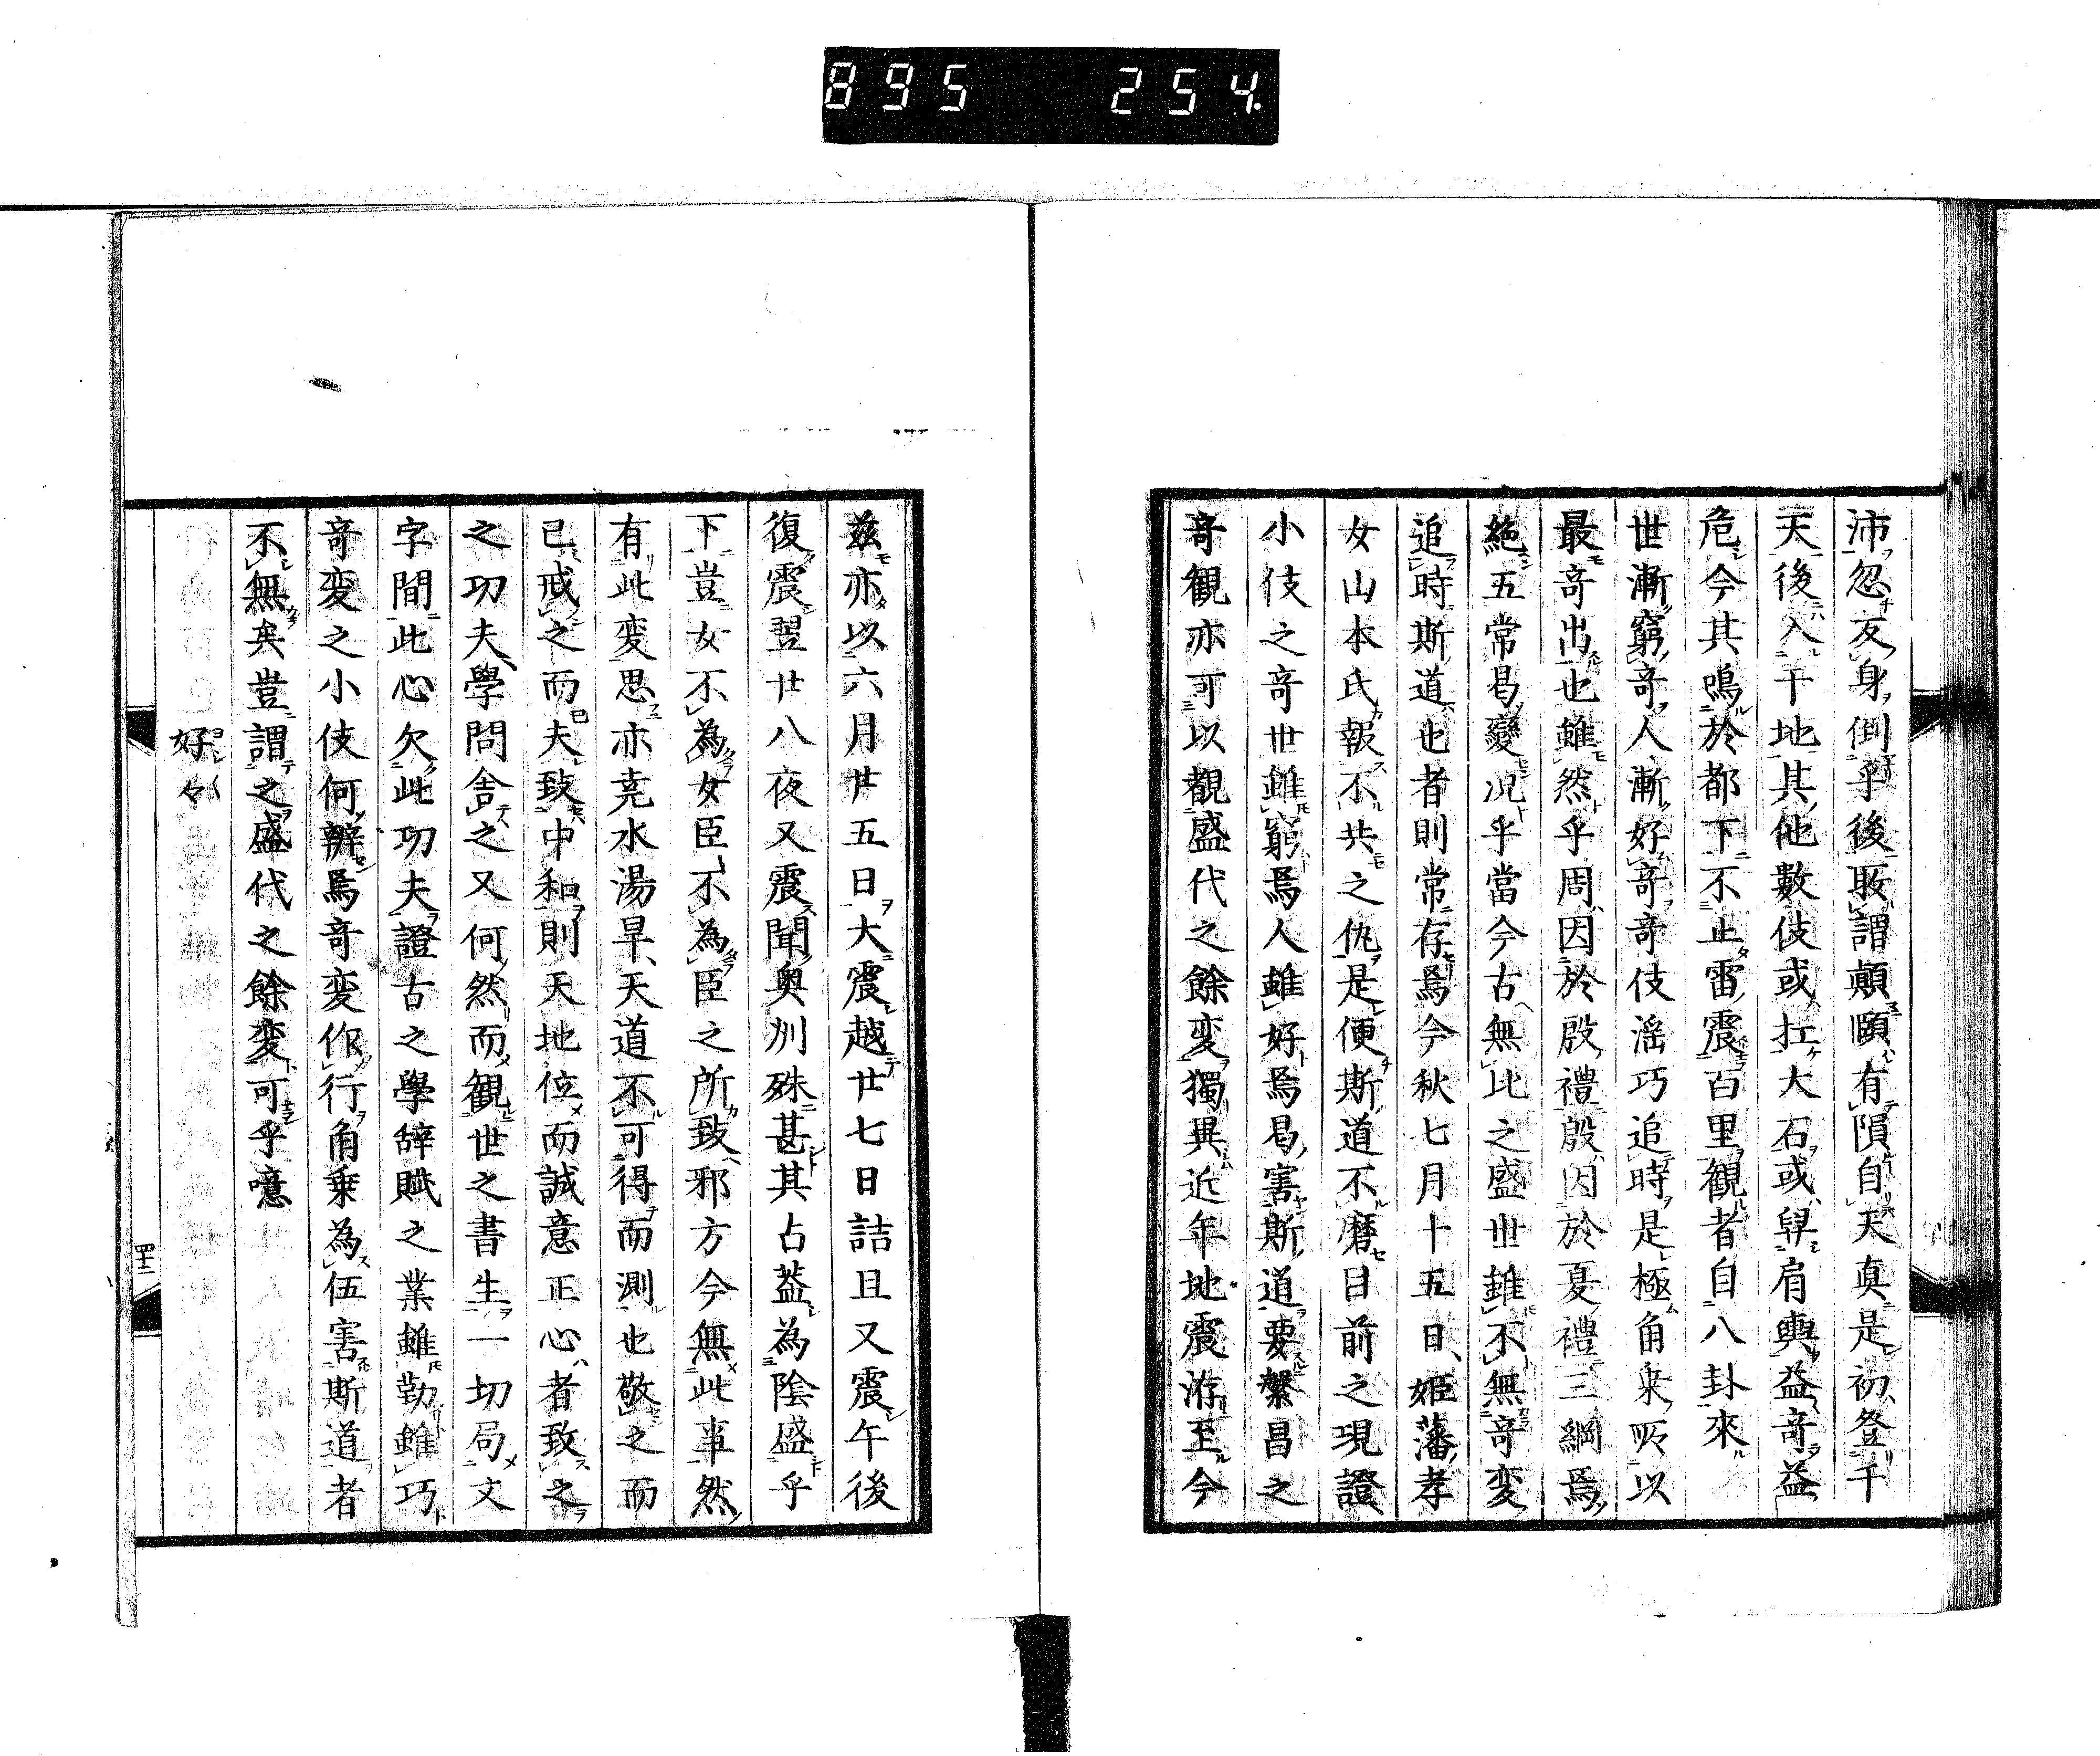 895 254
沛忽反身倒乎後㪅謂顛頤有隕自天真是初登于
天後入于地其他數伎或扛大石或舁肩輿益竒益
危今其鳴於都下不止雷震百里観者自八卦來
世漸窮竒人漸好竒竒伎滛巧追時是極角乗所以
最竒出也雖然乎周因於殷禮殷因於夏禮三綱焉
絶五常曷變况乎當今古無比之盛世雖不無竒変
追時斯道也者則常存焉今秋七月十五日姫藩孝
女山本氏報不共之仇是便斯道不磨目前之現證
小伎之竒世雖窮焉人雖好焉曷害斯道要繫昌之
竒観亦可以観盛代之餘変獨異近年地震洊至今
茲亦以六月廿五日大震越廿七日詰旦又震午後
復震翌廿八夜又震聞奥州殊甚其占蓋為陰盛乎
下豈女不為女臣不為臣之所致邪方今無此事然
有此変思亦尭水湯旱天道不可得而測也敬之而
已戒之而夫致中和則天地位而誠意正心者致之
之功夫學問舎之又何然而観世之書生一切局文
字間此心欠此功夫證古之學辞賦之業雖勤雖巧
竒変之小伎何辨焉竒変作行角乗為伍害斯道者
不無矣豈謂之盛代之餘変可乎噫
好々
四十二